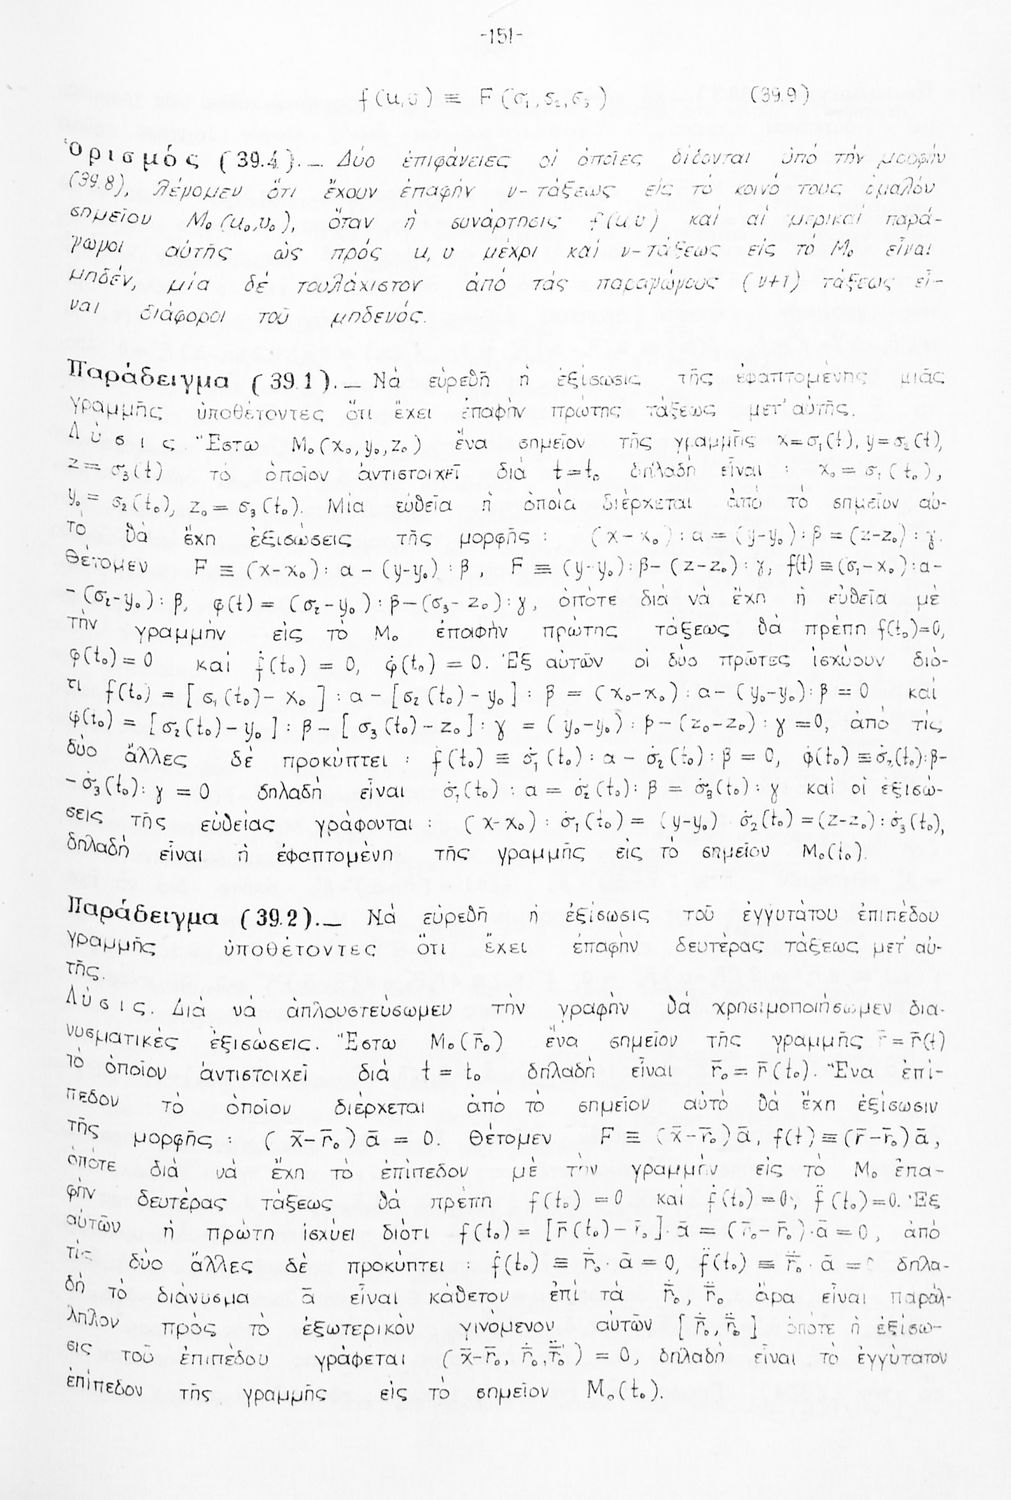 -151-
f(u,υ) ≡ F(σ₁,σ₂,σ₃) (39.9)
Ὁρισμός (39.4)._ Δύο ἐπιφάνειες οἱ ὁποῖες δίδονται ὑπό τήν μορφήν
(39.8), λέγομεν ὅτι ἔχουν ἐπαφήν ν-τάξεως εἰς τό κοινό τους ὁμαλόν
σημείου M₀(u₀,υ₀), ὅταν ἡ συνάρτησις f(u υ) καί αἱ μερικαί παρά-
γωγοι αὐτῆς ὡς πρός u, υ μέχρι καί ν-τάξεως εἰς τό M₀ εἶναι
μηδέν, μία δέ τουλάχιστον ἀπό τάς παραγώγους (ν+1) τάξεως εἶ-
ναι διάφοροι τοῦ μηδενός.
Παράδειγμα (39.1)._ Νά εὑρεθῆ ἡ ἐξίσωσις τῆς ἐφαπτομένης μιᾶς
γραμμῆς ὑποθέτοντες ὅτι ἔχει ἐπαφήν πρώτης τάξεως μετ' αὐτῆς.
Λύσις. Ἔστω M₀(x₀,y₀,z₀) ἕνα σημεῖον τῆς γραμμῆς x=σ₁(t), y=σ₂(t),
z=σ₃(t) τό ὁποῖον ἀντιστοιχεῖ διά t=t₀ δηλαδή εἶναι : x₀=σ₁(t₀),
y₀=σ₂(t₀), z₀=σ₃(t₀). Μία εὐθεῖα ἡ ὁποία διέρχεται ἀπό τό σημεῖον αὐ-
τό θά ἔχη ἐξισώσεις τῆς μορφῆς : (x-x₀):α=(y-y₀):β=(z-z₀):γ.
Θέτομεν F ≡ (x-x₀):α-(y-y₀):β, F ≡ (y-y₀):β-(z-z₀):γ, f(t)≡(σ₁-x₀):α-
-(σ₂-y₀):β, φ(t)=(σ₂-y₀):β-(σ₃-z₀):γ, ὁπότε διά νά ἔχη ἡ εὐθεῖα μέ
τήν γραμμήν εἰς τό M₀ ἐπαφήν πρώτης τάξεως θά πρέπη f(t₀)=0,
φ(t₀)=0 καί ḟ(t₀)=0, φ̇(t₀)=0. Ἐξ αὐτῶν οἱ δύο πρῶτες ἰσχύουν διό-
τι f(t₀)=[σ₁(t₀)-x₀]:α-[σ₂(t₀)-y₀]:β=(x₀-x₀):α-(y₀-y₀):β=0 καί
φ(t₀)=[σ₂(t₀)-y₀]:β-[σ₃(t₀)-z₀]:γ=(y₀-y₀):β-(z₀-z₀):γ=0, ἀπό τίς
δύο ἄλλες δέ προκύπτει : ḟ(t₀)≡σ̇₁(t₀):α-σ̇₂(t₀):β=0, φ̇(t₀)≡σ̇₂(t₀):β-
-σ̇₃(t₀):γ=0 δηλαδή εἶναι σ̇₁(t₀):α=σ̇₂(t₀):β=σ̇₃(t₀):γ καί οἱ ἐξισώ-
σεις τῆς εὐθείας γράφονται : (x-x₀):σ̇₁(t₀)=(y-y₀) σ̇₂(t₀)=(z-z₀):σ̇₃(t₀),
δηλαδή εἶναι ἡ ἐφαπτομένη τῆς γραμμῆς εἰς τό σημεῖον M₀(t₀).
Παράδειγμα (39.2)._ Νά εὑρεθῆ ἡ ἐξίσωσις τοῦ ἐγγυτάτου ἐπιπέδου
γραμμῆς ὑποθέτοντες ὅτι ἔχει ἐπαφήν δευτέρας τάξεως μετ' αὐ-
τῆς.
Λύσις. Διά νά ἁπλουστεύσωμεν τήν γραφήν θά χρησιμοποιήσωμεν δια-
νυσματικές ἐξισώσεις. Ἔστω M₀(r̄₀) ἕνα σημεῖον τῆς γραμμῆς r̄=r̄(t)
τό ὁποῖον ἀντιστοιχεῖ διά t=t₀ δηλαδή εἶναι r̄₀=r̄(t₀). Ἕνα ἐπί-
πεδον τό ὁποῖον διέρχεται ἀπό τό σημεῖον αὐτό θά ἔχη ἐξίσωσιν
τῆς μορφῆς : (x̄-r̄₀)ᾱ=0. Θέτομεν F≡(x̄-r̄₀)ᾱ, f(t)≡(r̄-r̄₀)ᾱ,
ὁπότε διά νά ἔχη τό ἐπίπεδον μέ τήν γραμμήν εἰς τό M₀ ἐπα-
φήν δευτέρας τάξεως θά πρέπη f(t₀)=0 καί ḟ(t₀)=0, f̈(t₀)=0. Ἐξ
αὐτῶν ἡ πρώτη ἰσχύει διότι f(t₀)=[r̄(t₀)-r̄₀]·ᾱ=(r̄₀-r̄₀)·ᾱ=0, ἀπό
τίς δύο ἄλλες δέ προκύπτει : ḟ(t₀)≡r̄̇₀·ᾱ=0, f̈(t₀)≡r̄̈₀·ᾱ=0 δηλα-
δή τό διάνυσμα ᾱ εἶναι κάθετον ἐπί τά r̄̇₀, r̄̈₀ ἄρα εἶναι παράλ-
ληλον πρός τό ἐξωτερικόν γινόμενον αὐτῶν [r̄̇₀, r̄̈₀] ὁπότε ἡ ἐξίσω-
σις τοῦ ἐπιπέδου γράφεται (x̄-r̄₀, r̄̇₀, r̄̈₀)=0, δηλαδή εἶναι τό ἐγγύτατον
ἐπίπεδον τῆς γραμμῆς εἰς τό σημεῖον M₀(t₀).